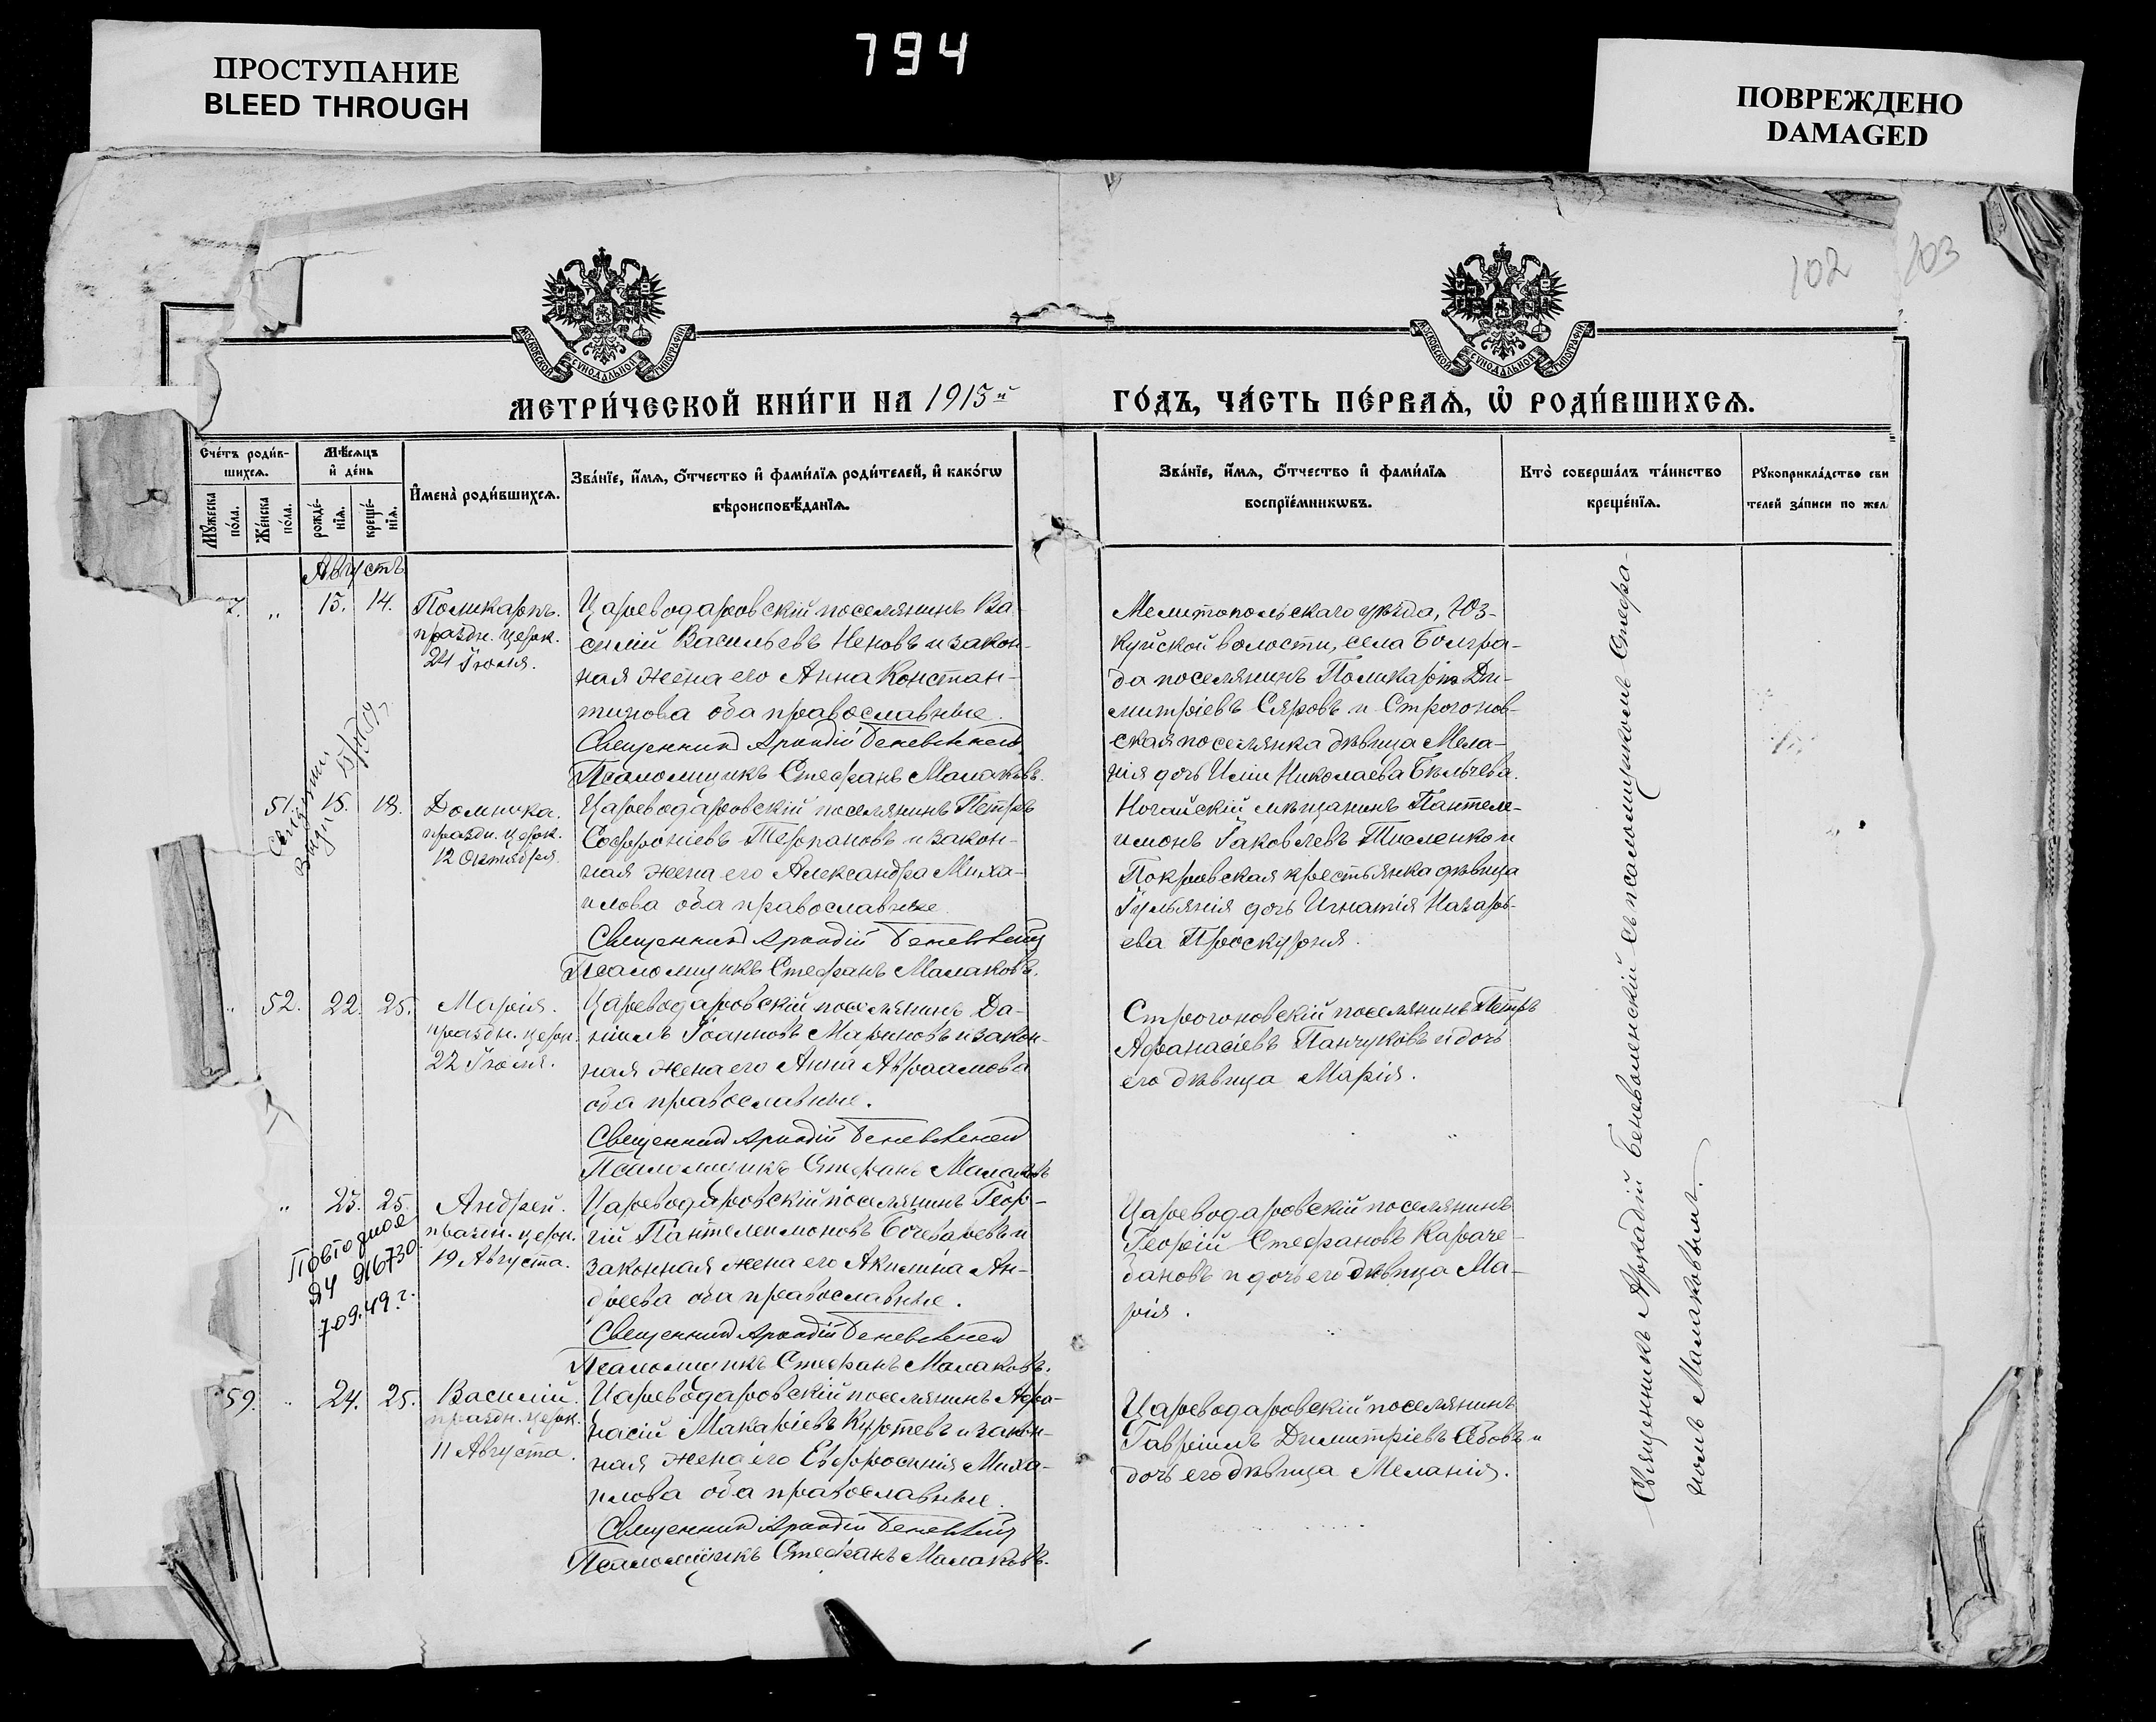 ПРОСТУПАНИЕ
BLEED THROUGH
794
ПОВРЕЖДЕНО
DAMAGED
102
103
МОСКОВСКОЙ СѴНОДАЛЬНОЙ ТИПОГРАФІИ
МОСКОВСКОЙ СѴНОДАЛЬНОЙ ТИПОГРАФІИ
МЕТРИ́ЧЕСКОЙ КНИ́ГИ НА 1915й ГО́ДЪ, ЧА́СТЬ ПЕ́РВАѦ, Ѡ҆ РОДИ́ВШИХСѦ.
Сче́тъ роди́в-
шихсѧ.
Мꙋ́жеска по́ла.
Же́нска по́ла.
Мѣ́сѧцъ
и҆ де́нь
рожде́-
нїѧ.
креще́-
нїѧ.
И҆мена̀ роди́вшихсѧ.
Зва́нїе, и҆́мѧ, ѻ҆́тчество и҆ фами́лїѧ роди́телей, и҆ како́гѡ
вѣроисповѣ́данїѧ.
Зва́нїе, и҆́мѧ, ѻ҆́тчество и҆ фами́лїѧ
воспрїе́мникѡвъ.
Кто̀ соверша́лъ та́инство
креще́нїѧ.
Рꙋкоприкла́дство сви
телей за́писи по жел
Августъ
7. „ 13. 14.
Поликарпъ.
праздн. церк.
24 Іюля.
Цареводаровскій поселянинъ Ва-
силій Васильевъ Неновъ и закон-
ная жена его Анна Констан-
тинова оба православные.
Священникъ Аркадій Беневоленскій
Псаломщикъ Стефанъ Малаковъ.
Мелитопольскаго уѣзда, Юз-
куйской волости, села Болгра-
да поселянинъ Поликарпъ Ди-
митріевъ Сяровъ и Строгонов-
ская поселянка дѣвица Мела-
нія дочь Иліи Николаева Бѣльчева.
51. 15. 18.
Домника.
праздн. церк.
12 Октября.
Цареводаровскій поселянинъ Петръ
Софроніевъ Терпановъ и закон-
ная жена его Александра Миха-
илова оба православные
Священникъ Аркадій Беневоленскій
Псаломщикъ Стефанъ Малаковъ.
Ногайскій мѣщанинъ Пантеле-
имонъ Іаковлевъ и
Покровская крестьянка дѣвица
Іуліанія дочь Игнатія Назарь-
ева Проскурня.
„ 52. 22. 25.
Марія.
праздн. церк.
22 Іюля.
Цареводаровскій поселянинъ Да-
ніилъ Іоанновъ Мариновъ и закон-
ная жена его Анна Авраамова
оба православные.
Священникъ Аркадій Беневоленскій
Псаломщикъ Стефанъ Малаковъ
Строгоновскій поселянинъ Петръ
Афанасіевъ Панчуковъ и дочь
его дѣвица Марія.
„ 23. 25.
Повторное
ЯЧ 916730
7.09.49 г.
Андрей.
праздн. церк.
19 Августа.
Цареводаровскій поселянинъ Геор-
гій Пантелеимоновъ Бочеваровъ и
законная жена его Акилина Ан-
дреева оба православные.
Священникъ Аркадій Беневоленскій
Псаломщикъ Стефанъ Малаковъ.
Цареводаровскій поселянинъ
Георгій Стефановъ Караче-
бановъ и дочь его дѣвица Ма-
рія.
59. „ 24. 25.
Василій.
праздн. церк.
11 Августа.
Цареводаровскій поселянинъ Афа-
насій Макаріевъ Куртевъ и закон-
ная жена его Евфросинія Миха-
илова оба православные.
Священникъ Аркадій Беневоленскій
Псаломщикъ Стефанъ Малаковъ.
Цареводаровскій поселянинъ
Гавріилъ Димитріевъ и
дочь его дѣвица Меланія.
Священникъ Аркадій Беневоленскій съ псаломщикомъ Стефа-
номъ Малаковымъ.